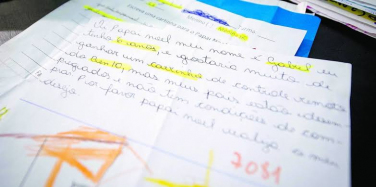 Oi Papai noel meu nome é Gabriel eu
tenho 6 anos, e gostaria muito de
ganhar um carrinho de controle remoto
do Ben 10, mas meus pais estão desem
pregados e não tem condições de com
prar. Por favor papai noel realize o meu
7081